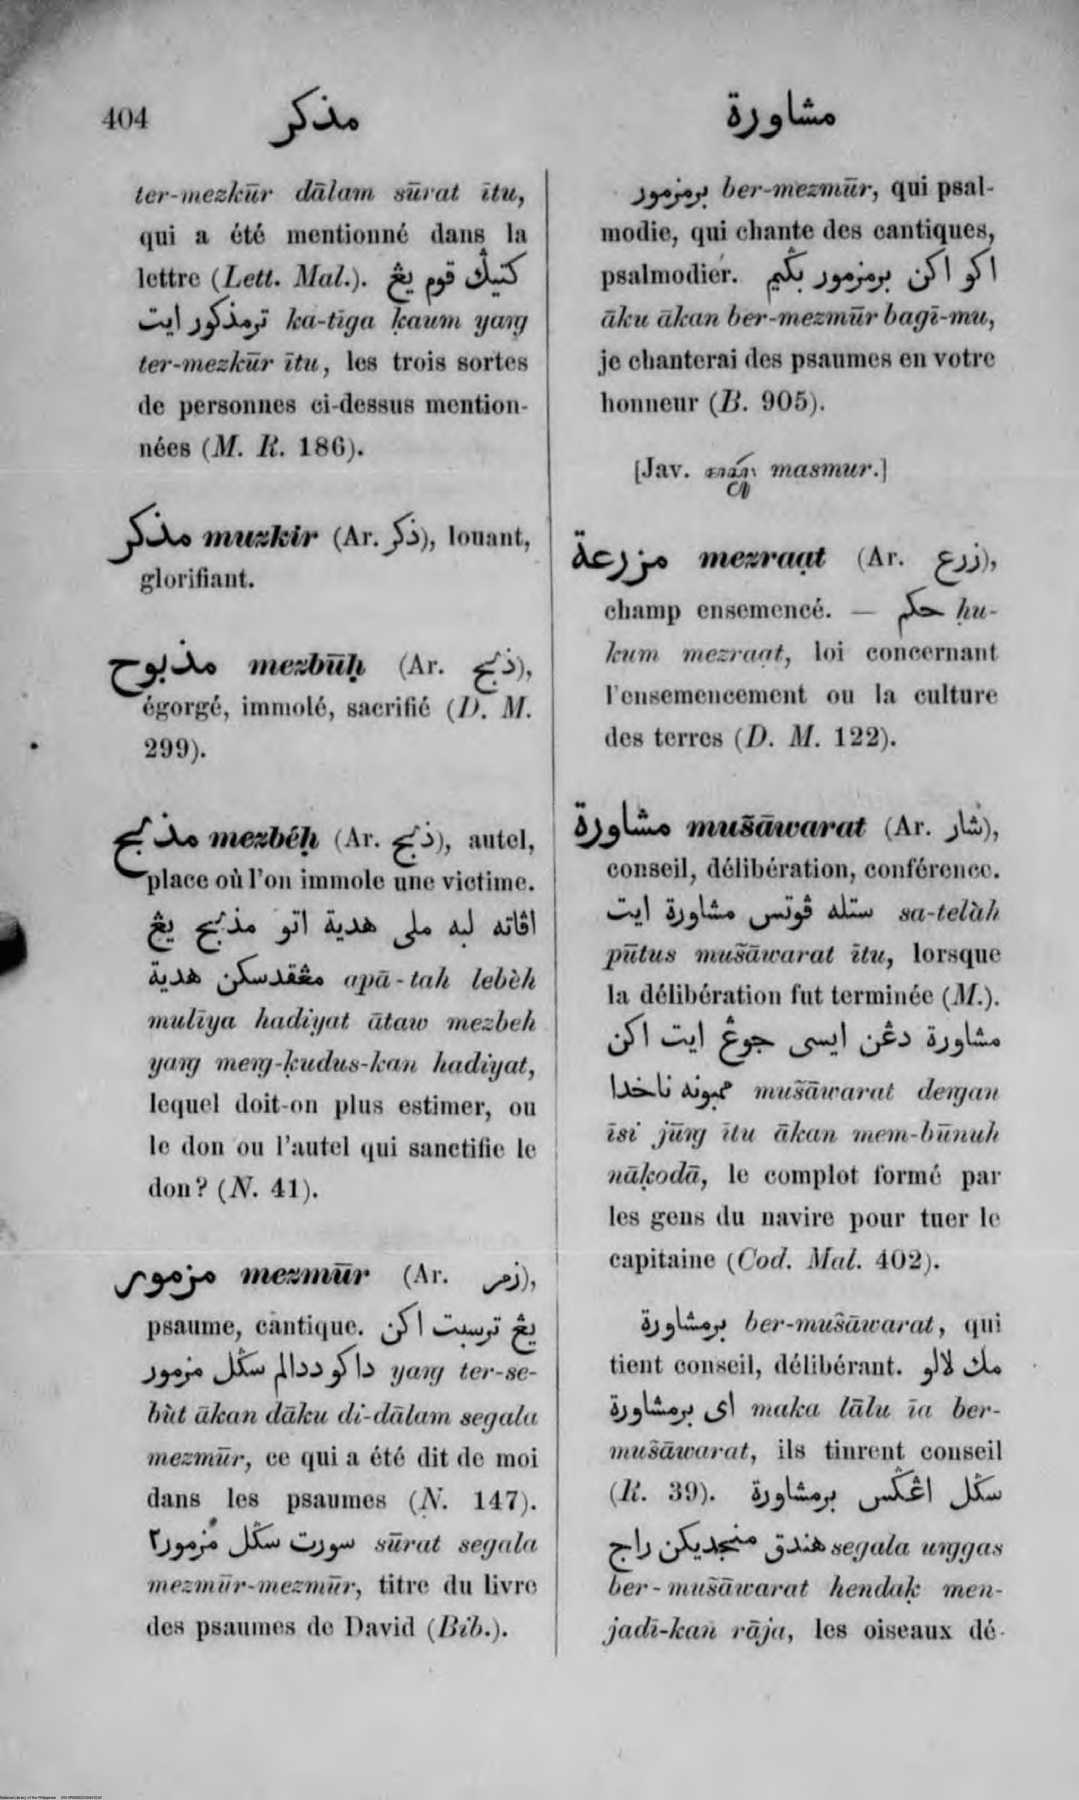 404 مذكر مشاورة
ter-mezkūr dālam sūrat ītu,
qui a été mentionné dans la
lettre (Lett. Mal.). كتيڬ قوم يڠ
ترمذكور ايت ka-tīga ḳaum yaŋ
ter-mezkūr ītu, les trois sortes
de personnes ci-dessus mention-
nées (M. R. 186).
مذكر muzkir (Ar. ذكر), louant,
glorifiant.
مذبوح mezbūḥ (Ar. ذبح),
égorgé, immolé, sacrifié (D. M.
299).
مذبح mezbéḥ (Ar. ذبح), autel,
place où l'on immole une victime.
اڤاته لبه ملى هدية اتو مذبح يڠ
مڠقدسكن هدية apā-tah lebèh
mulīya hadiyat ātaw mezbeh
yaŋ meŋ-ḳudus-kan hadiyat,
lequel doit-on plus estimer, ou
le don ou l'autel qui sanctifie le
don? (N. 41).
مزمور mezmūr (Ar. زمر),
psaume, cantique. يڠ ترسبت اكن
داكو ددالم سڬل مزمور yaŋ ter-se-
bùt ākan dāku di-dālam segala
mezmūr, ce qui a été dit de moi
dans les psaumes (N. 147).
سورت سڬل مزمور٢ sūrat segala
mezmūr-mezmūr, titre du livre
des psaumes de David (Bib.).
برمزمور ber-mezmūr, qui psal-
modie, qui chante des cantiques,
psalmodier. اكو اكن برمزمور بڬيم
āku ākan ber-mezmūr bagī-mu,
je chanterai des psaumes en votre
honneur (B. 905).
[Jav. masmur.]
مزرعة mezraạt (Ar. زرع),
champ ensemencé. — حكم ḥu-
kum mezraạt, loi concernant
l'ensemencement ou la culture
des terres (D. M. 122).
مشاورة mušāwarat (Ar. شار),
conseil, délibération, conférence.
ستله ڤوتس مشاورة ايت sa-telàh
pūtus mušāwarat ītu, lorsque
la délibération fut terminée (M.).
مشاورة دڠن ايسى جوڠ ايت اكن
ممبونه ناخدا mušāwarat deŋan
īsi jūŋ ītu ākan mem-būnuh
nāḳodā, le complot formé par
les gens du navire pour tuer le
capitaine (Cod. Mal. 402).
برمشاورة ber-mušāwarat, qui
tient conseil, délibérant. مك لالو
اى برمشاورة maka lālu īa ber-
mušāwarat, ils tinrent conseil
(R. 39). سڬل اڠڬس برمشاورة
هندق منجديكن راج segala uŋgas
ber-mušāwarat hendaḳ men-
jadi-kan rāja, les oiseaux dé-